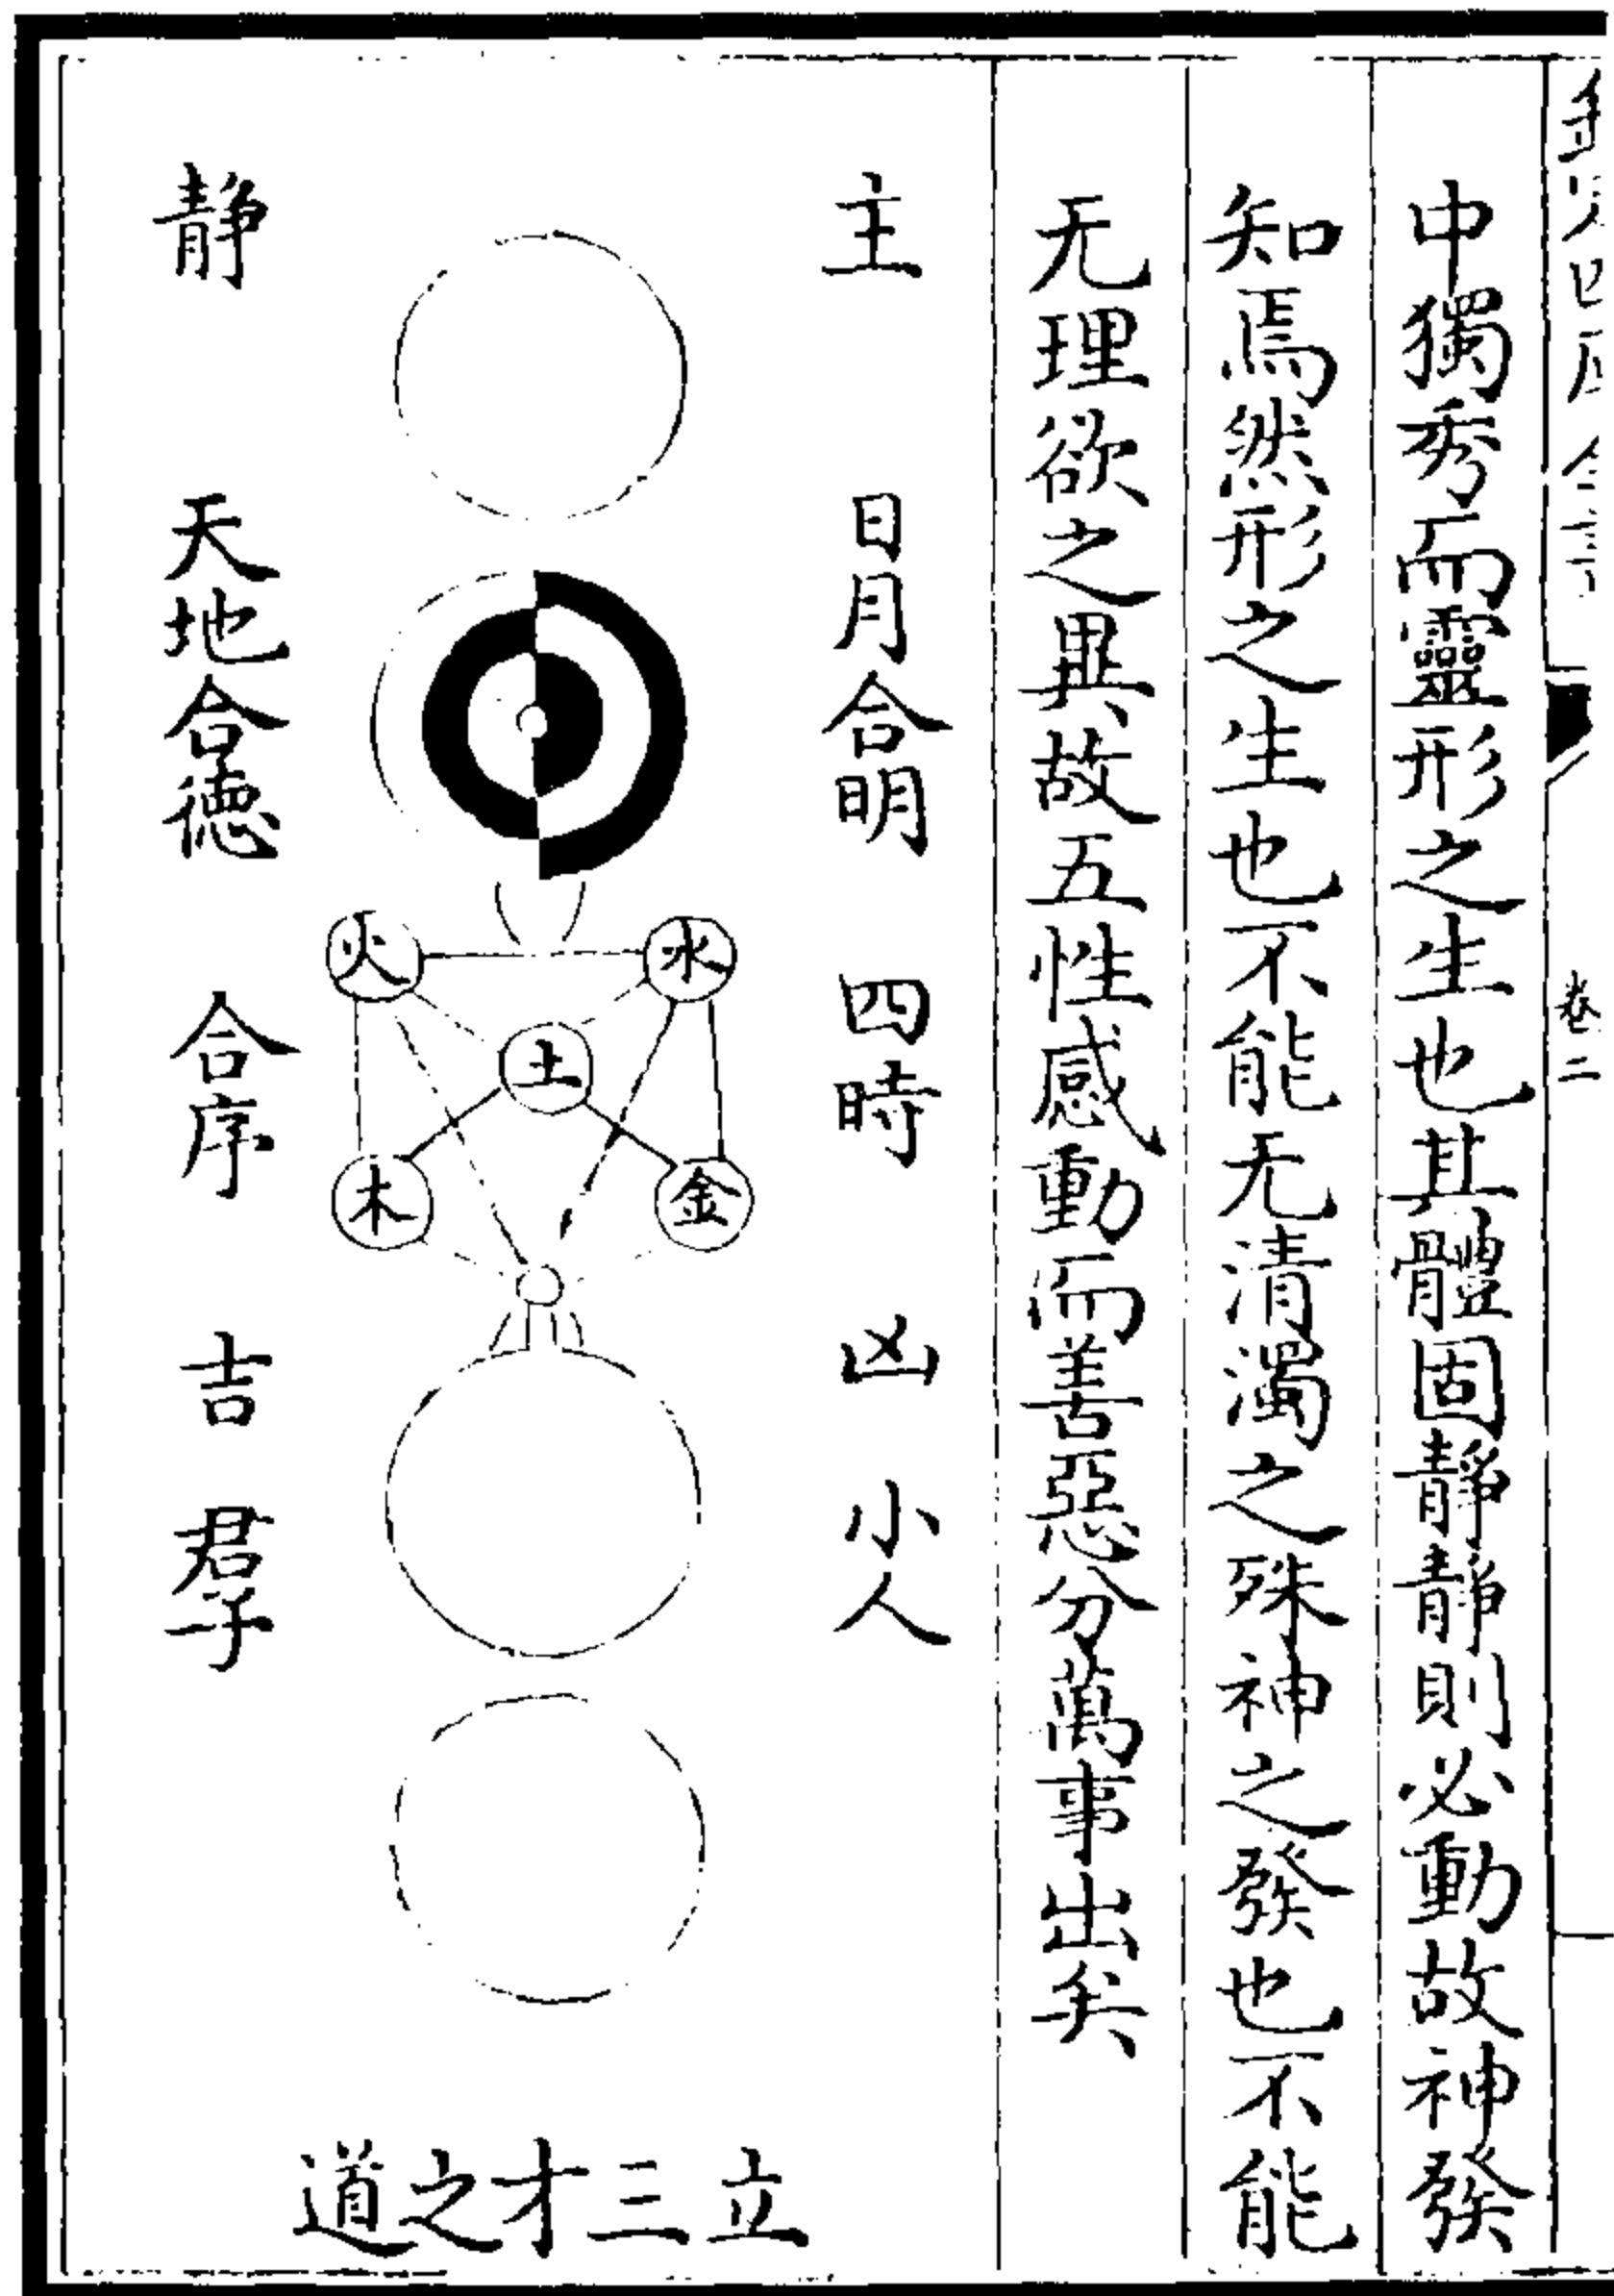 卷二
中獨秀而靈形之生也其體固靜靜則必動故神發
知焉然形之生也不能无清濁之殊神之發也不能
无理欲之異故五性感動而善惡分萬事出矣
主
日月合明
四時
凶
小人
火
水
土
木
金
靜
天地合德
合序
吉
君子
立三才之道